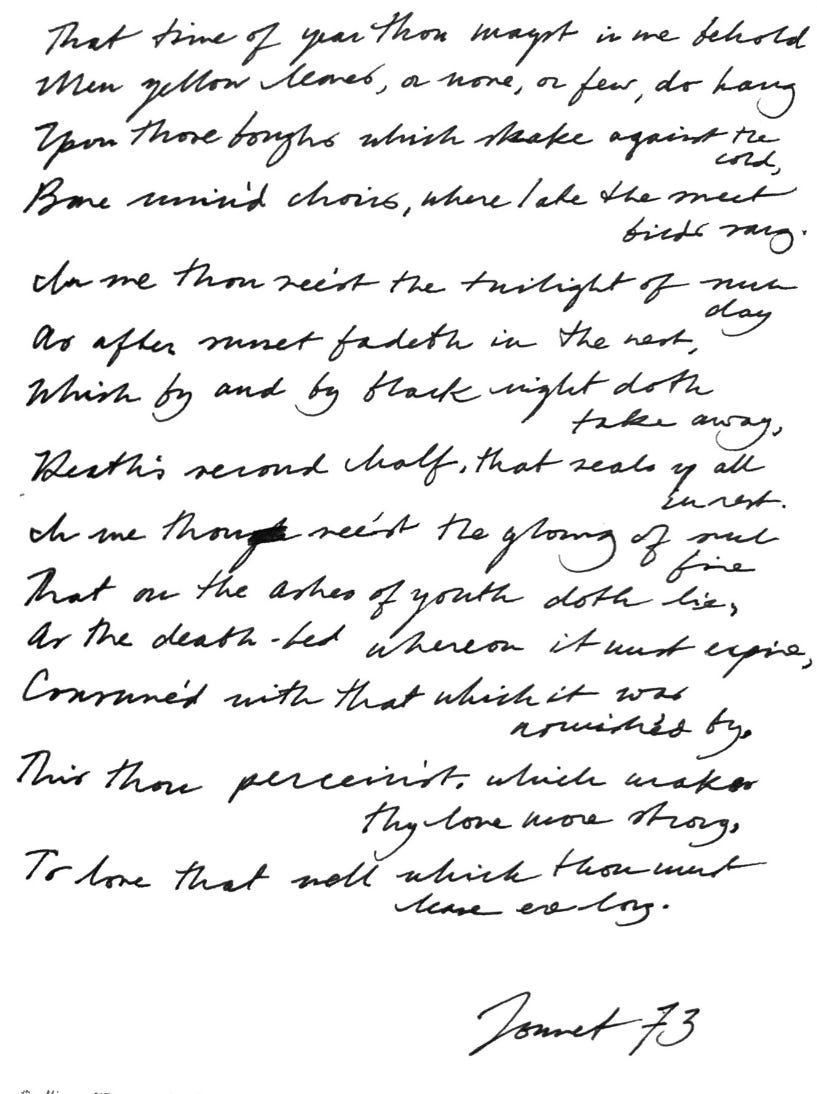 That time of year thou mayst in me behold
When yellow leaves, or none, or few, do hang
Upon those boughs which shake against the
cold,
Bare ruin'd choirs, where late the sweet
birds sang.
In me thou see'st the twilight of such
day
As after sunset fadeth in the west,
Which by and by black night doth
take away,
Death's second half, that seals up all
in rest.
In me thou see'st the glowing of such
fire
That on the ashes of youth doth lie,
As the death-bed whereon it must expire,
Consum'd with that which it was
nourish'd by.
This thou perceiv'st, which makes
thy love more strong,
To love that well which thou must
leave ere long.
Sonnet 73